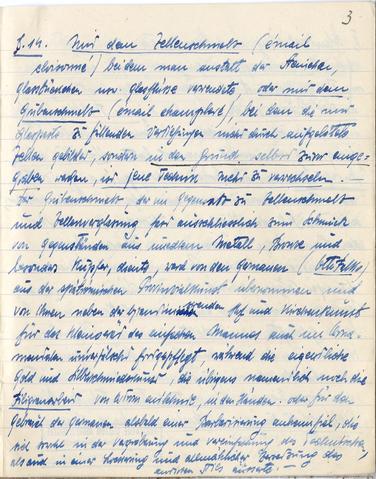 3
S. 14. Mit dem Zellenschmelz (émail
cloisonné) bei dem man anstatt der Steinchen,
Glasstückchen usw. Glasflüsse verwendete, oder mit dem
Grubenschmelz (émail champlevé), bei dem die mit
Glaspasta zu füllenden Vertiefungen nicht durch aufgelötete
Zellen gebildet, sondern in den Grund selbst zuvor einge-
graben werden, ist jene Technik nicht zu verwechseln. —
Der Grubenschmelz, der im Gegensatz zu Zellenschmelz
und Zellenverglasung fast ausschliesslich zum Schmuck
von Gegenständen aus unedlem Metall, Bronze und
besonders Kupfer, diente, ward von den Germanen (Otto Falke)
aus der spätrömischen Provinzialkunst übernommen und
von ihnen neben der byzantinisierenden Hof und Kirchenkunst
für das Kleingerät des einfachen Mannes auch im Orna-
mentalen unverfälscht fortgepflegt während die eigentliche
Gold und Silberschmiedekunst, die übrigens namentlich noch die
Filigranarbeit von Byzanz entlehnte, in den Händen oder für den
Gebrauch der Germanen alsbald einer Barbarisierung anheimfiel, die
sich sowohl in der Vergröberung und Vereinfachung des Technischen
als auch in einer und allmählicher Zersetzung des
antiken Stils äusserte —